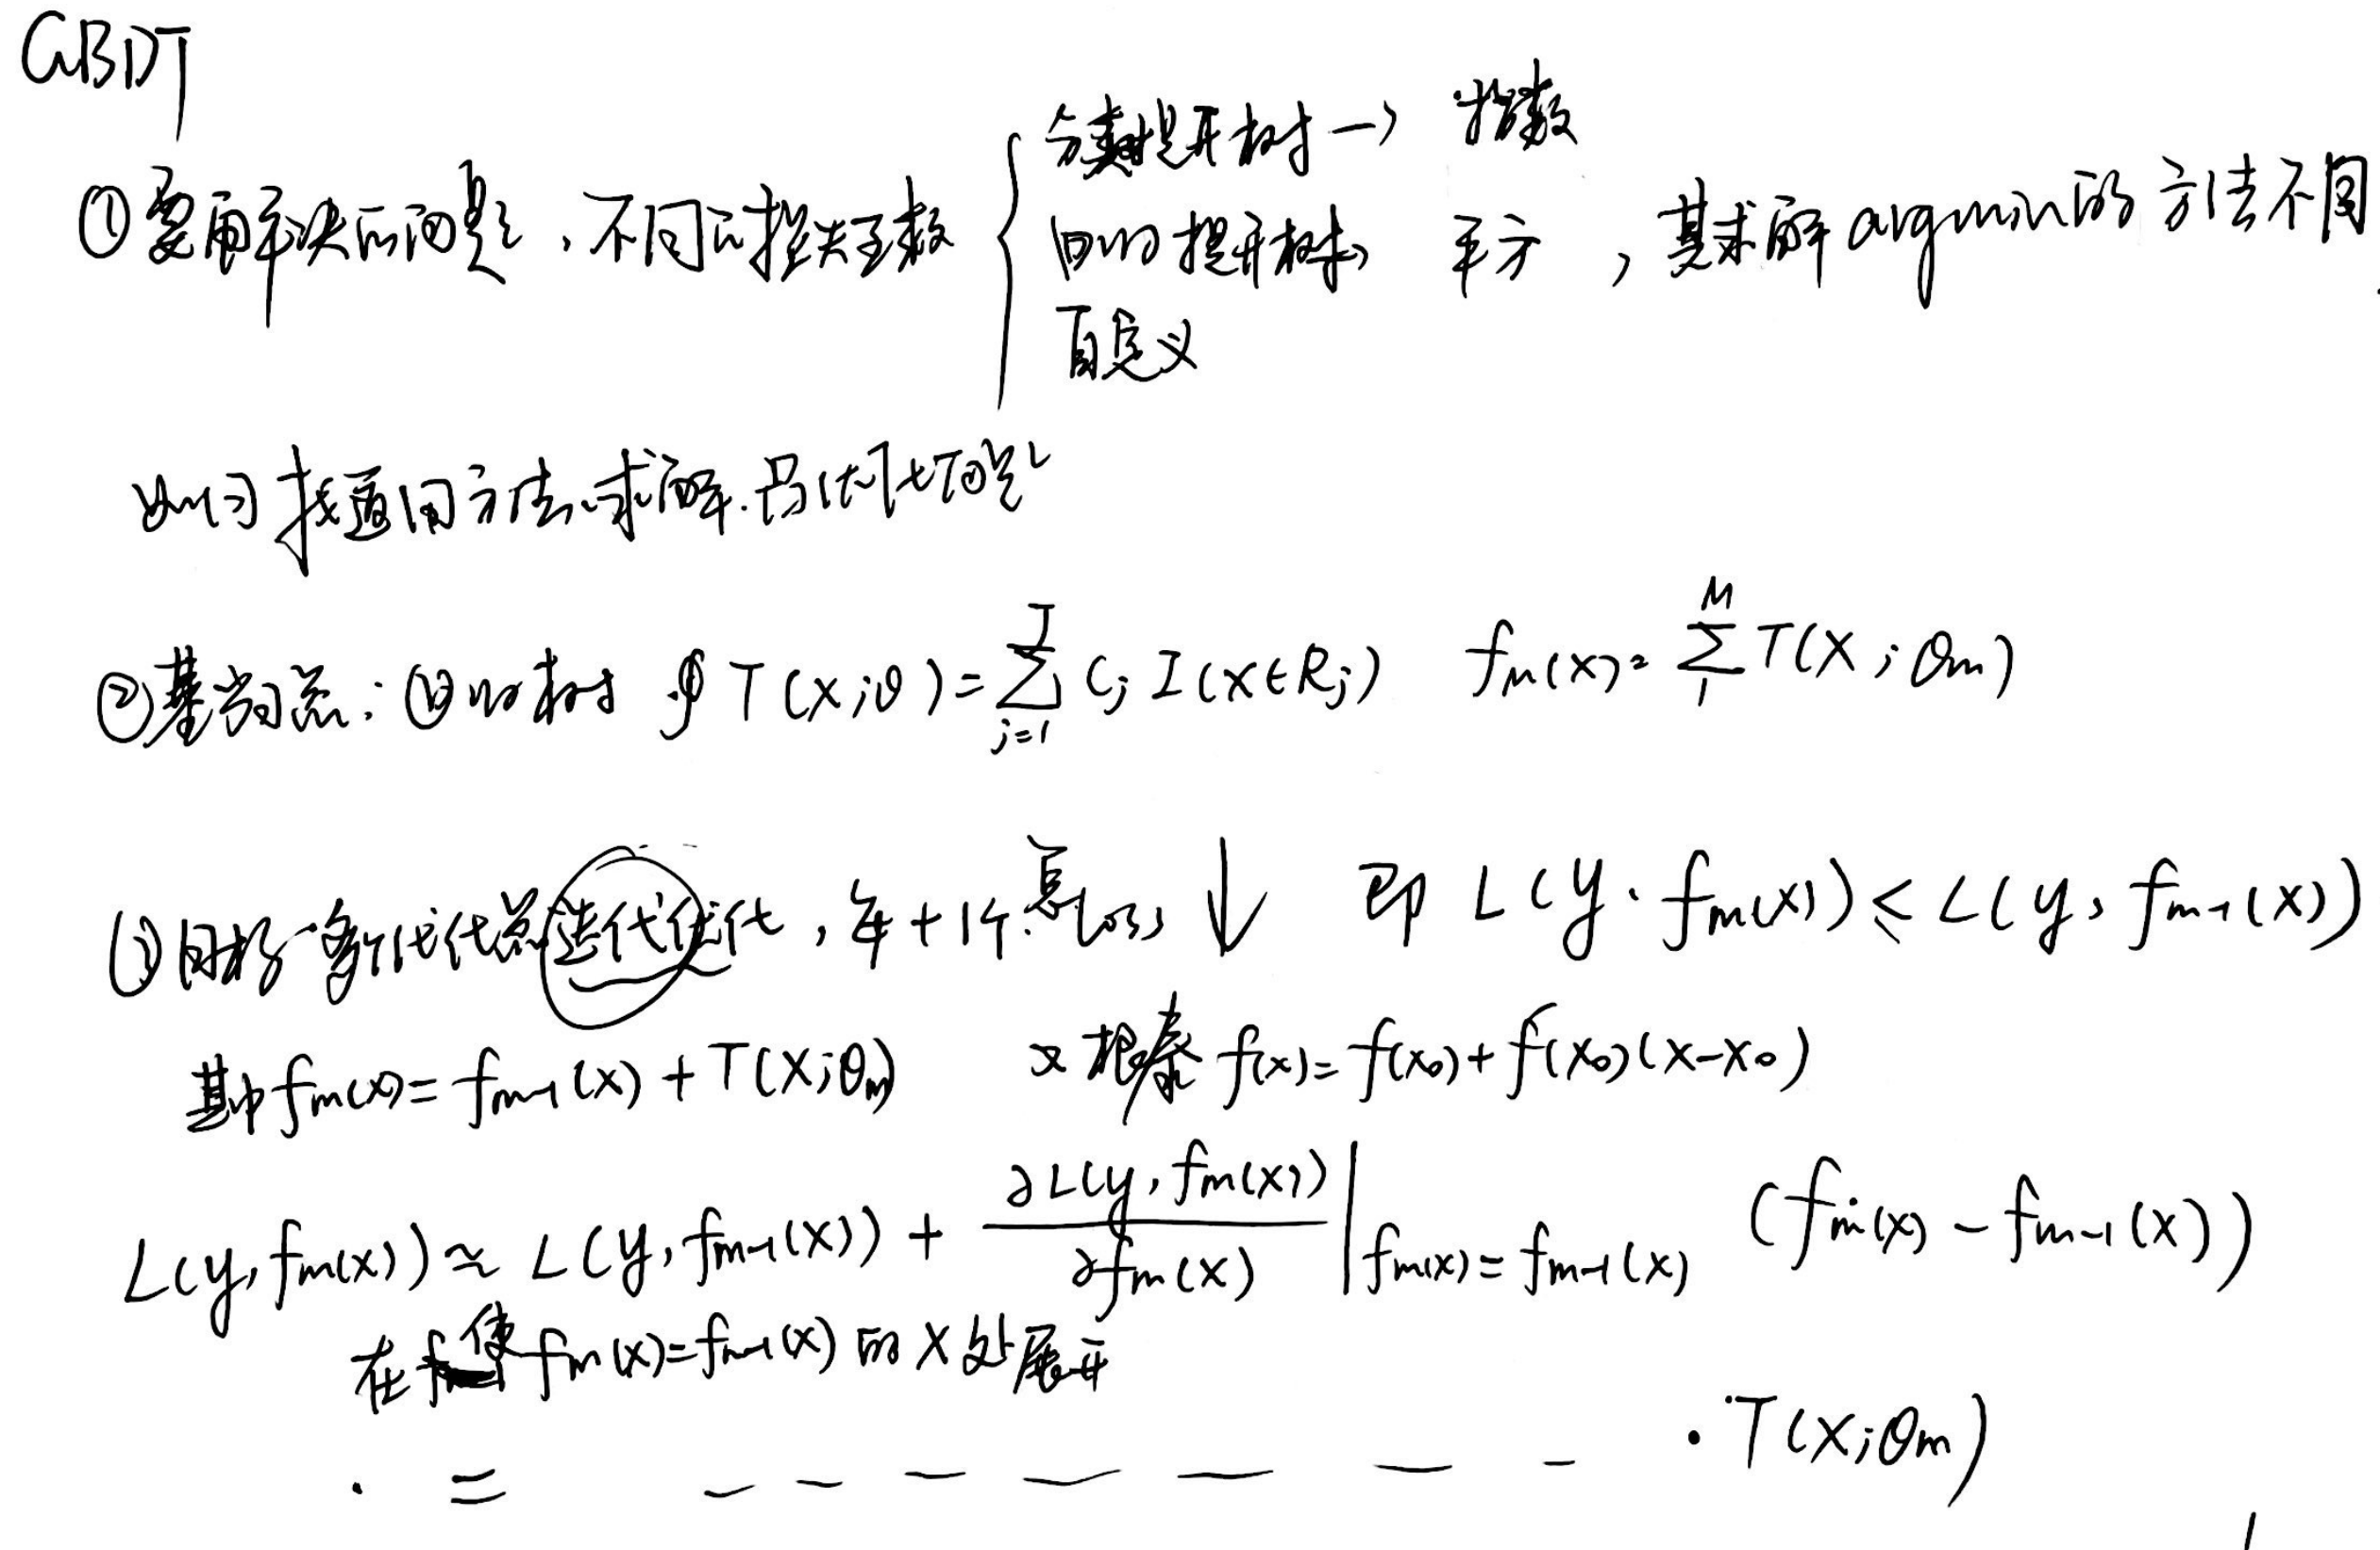 GBDT
分类提升树 → 指数
① 要解决的问题,不同的损失函数 { 回归提升树, 平方 , 其求解 argmin的方法不同
自定义
如何找通用方法求解.凸优化问题
② 基学习器: 回归树 T(x;θ) = ∑_{j=1}^{J} C_j I(x∈R_j) f_M(x) = ∑_{1}^{M} T(x;θ_m)
③ 目标 每次迭代 迭代优化, 每+1个 总loss ↓ 即 L(y, f_m(x)) ≤ L(y, f_{m-1}(x))
其中 f_m(x) = f_{m-1}(x) + T(x;θ_m) 又 根据 f(x) = f(x_0) + f'(x_0)(x-x_0)
L(y, f_m(x)) ≈ L(y, f_{m-1}(x)) + ∂L(y, f_m(x)) / ∂f_m(x) | f_m(x) = f_{m-1}(x) (f_m(x) - f_{m-1}(x))
在使 f_m(x) = f_{m-1}(x) 的 x 处展开
= — — — — — — — · T(x;θ_m)